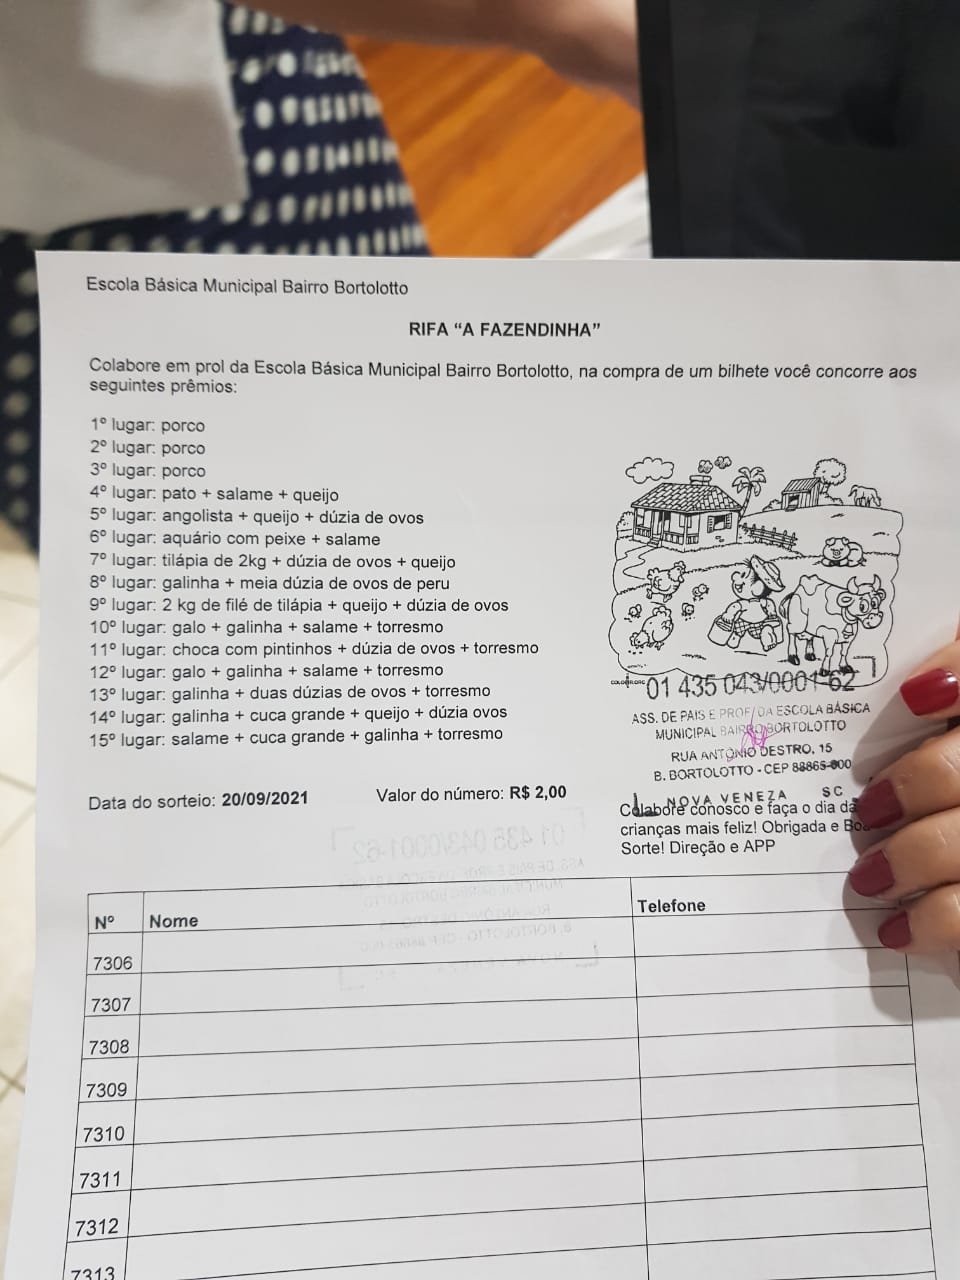 Escola Básica Municipal Bairro Bortolotto
RIFA “A FAZENDINHA”
Colabore em prol da Escola Básica Municipal Bairro Bortolotto, na compra de um bilhete você concorre aos
seguintes prêmios:
1º lugar: porco
2º lugar: porco
3º lugar: porco
4º lugar: pato + salame + queijo
5º lugar: angolista + queijo + dúzia de ovos
6º lugar: aquário com peixe + salame
7º lugar: tilápia de 2kg + dúzia de ovos + queijo
8º lugar: galinha + meia dúzia de ovos de peru
9º lugar: 2 kg de filé de tilápia + queijo + dúzia de ovos
10º lugar: galo + galinha + salame + torresmo
11º lugar: choca com pintinhos + dúzia de ovos + torresmo
12º lugar: galo + galinha + salame + torresmo
13º lugar: galinha + duas dúzias de ovos + torresmo
14º lugar: galinha + cuca grande + queijo + dúzia ovos
15º lugar: salame + cuca grande + galinha + torresmo
01 435 043/0001-62
ASS. DE PAIS E PROF. DA ESCOLA BÁSICA
MUNICIPAL BAIRRO BORTOLOTTO
RUA ANTONIO DESTRO, 15
B. BORTOLOTTO - CEP 88865-000
NOVA VENEZA SC
Data do sorteio: 20/09/2021
Valor do número: R$ 2,00
Colabore conosco e faça o dia da
crianças mais feliz! Obrigada e
Sorte! Direção e APP
Nº Nome Telefone
7306
7307
7308
7309
7310
7311
7312
7313